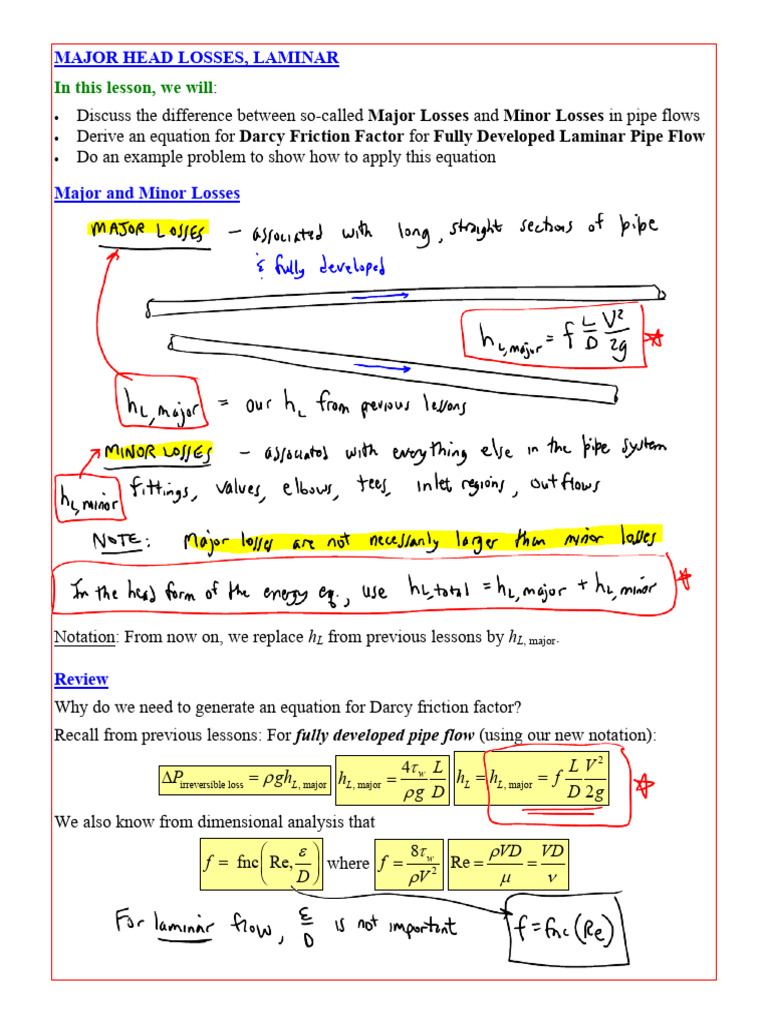 MAJOR HEAD LOSSES, LAMINAR
In this lesson, we will:
• Discuss the difference between so-called Major Losses and Minor Losses in pipe flows
• Derive an equation for Darcy Friction Factor for Fully Developed Laminar Pipe Flow
• Do an example problem to show how to apply this equation
Major and Minor Losses
MAJOR LOSSES – associated with long, straight sections of pipe
& fully developed
h_L,major = f L/D V²/2g
h_L,major = our h_L from previous lessons
MINOR LOSSES – associated with everything else in the pipe system
h_L,minor fittings, valves, elbows, tees, inlet regions, outflows
NOTE: Major losses are not necessarily larger than minor losses
In the head form of the energy eq., use h_L,total = h_L,major + h_L,minor
Notation: From now on, we replace h_L from previous lessons by h_L, major.
Review
Why do we need to generate an equation for Darcy friction factor?
Recall from previous lessons: For fully developed pipe flow (using our new notation):
ΔP_irreversible loss = ρgh_L, major h_L, major = 4τ_w/ρg L/D h_L = h_L, major = f L/D V²/2g
We also know from dimensional analysis that
f = fnc(Re, ε/D) where f = 8τ_w/ρV² Re = ρVD/μ = VD/ν
For laminar flow, ε/D is not important f = fnc(Re)